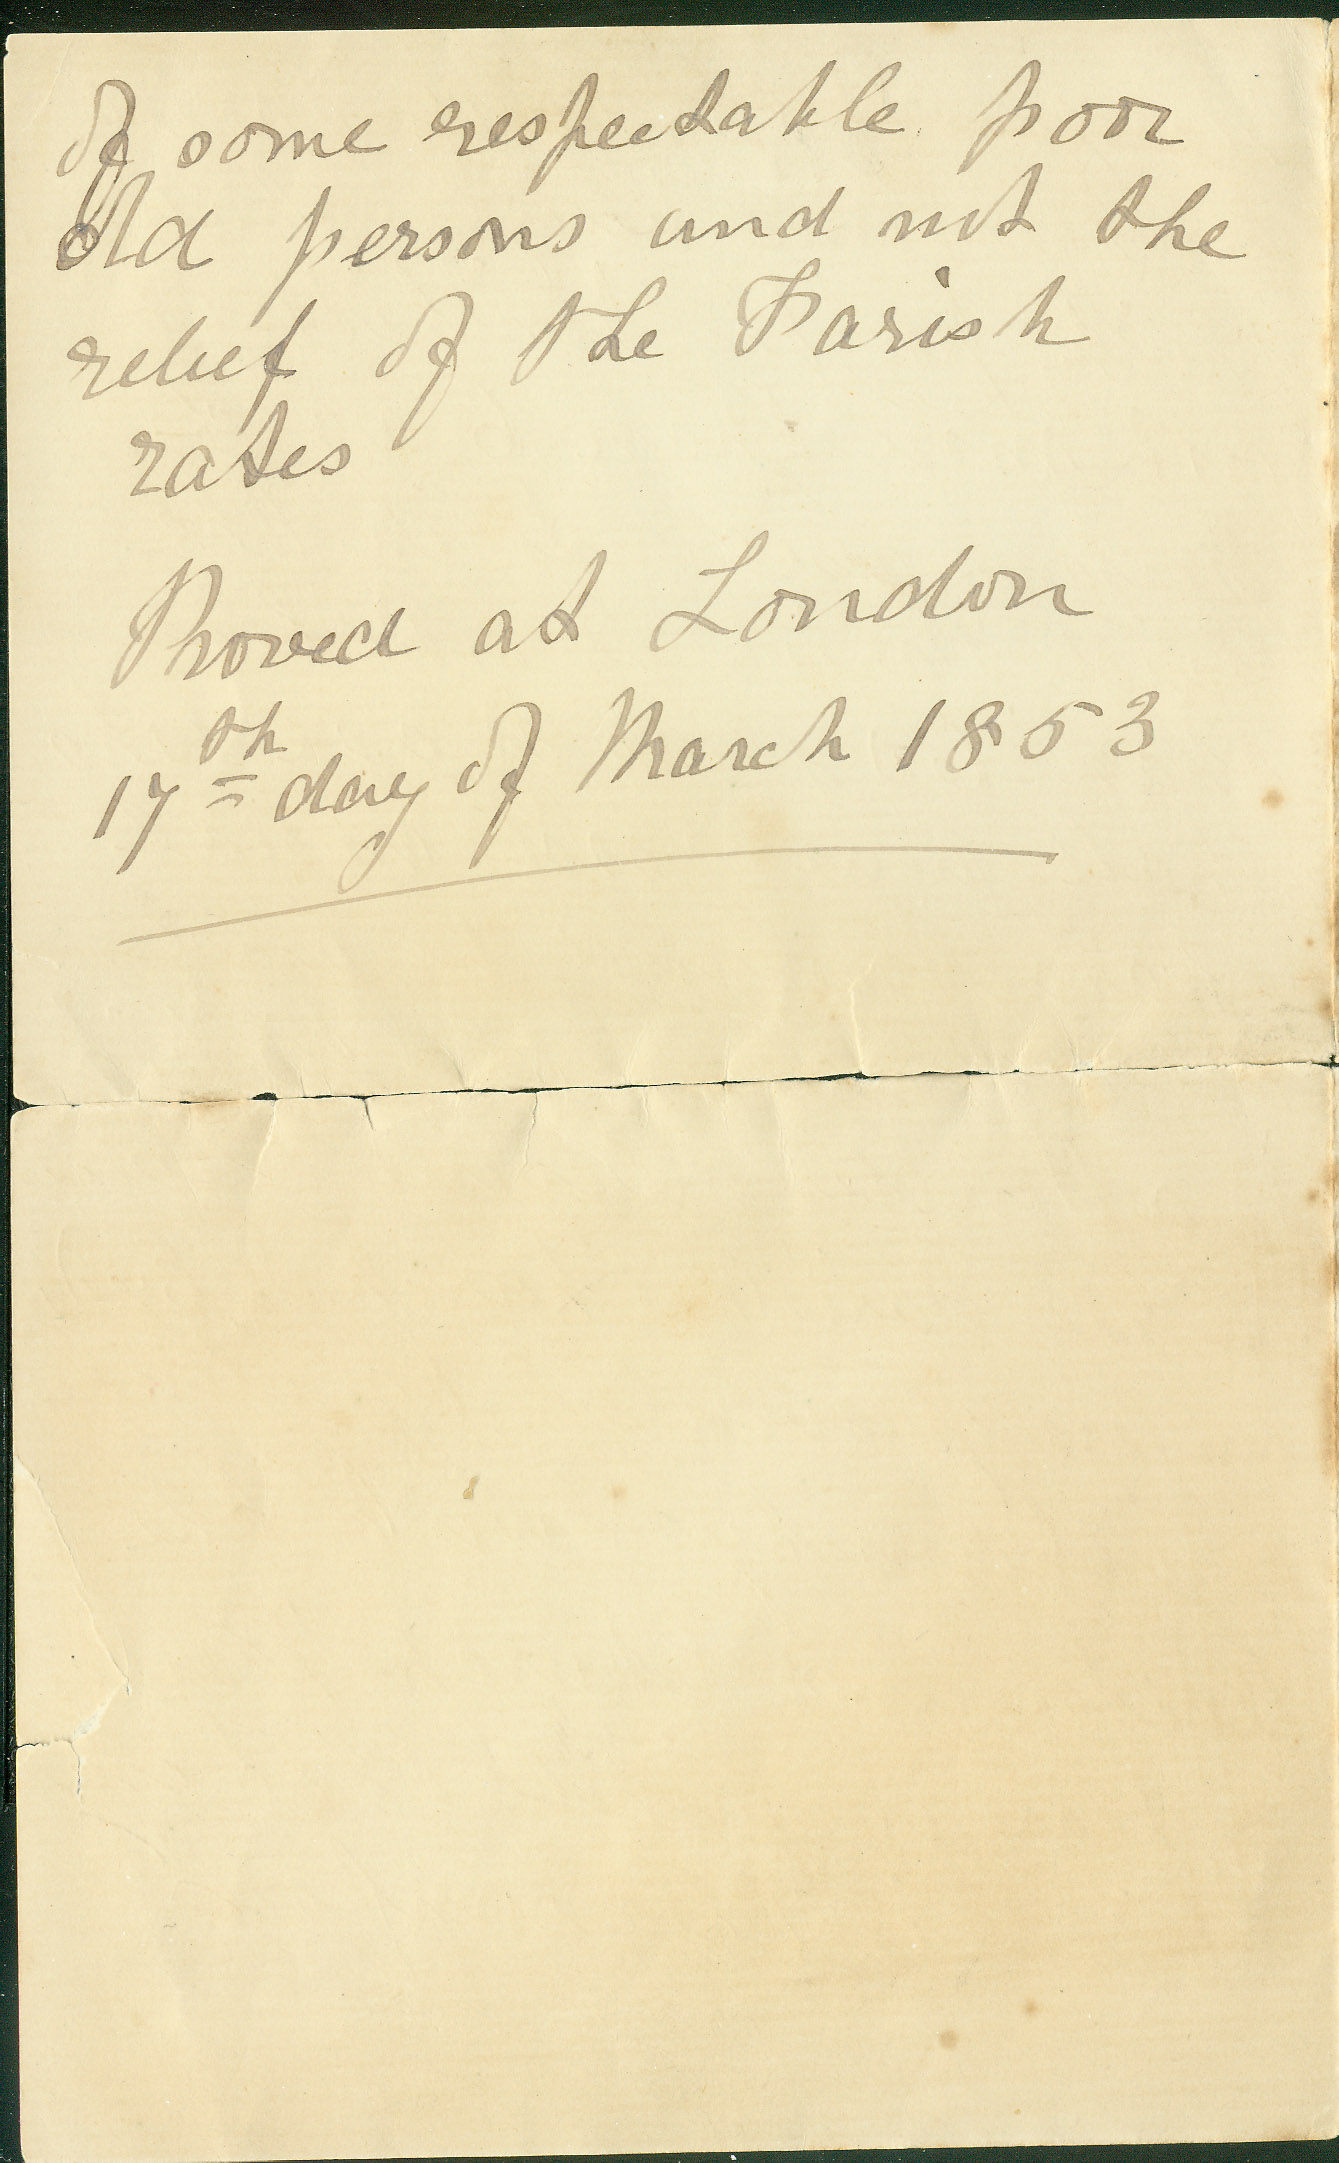 of some respectable poor
old persons and not the
relief of the Parish
rates
Proved at London
17th day of March 1853